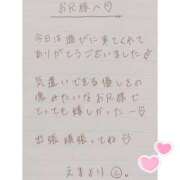 お兄様へ♡
今日は遊びに来てくれて
ありがとうございました♡
気遣いできる優しさの
塊みたいなお兄様で
とっても嬉しかったー♡
出張頑張ってね♡
えまより